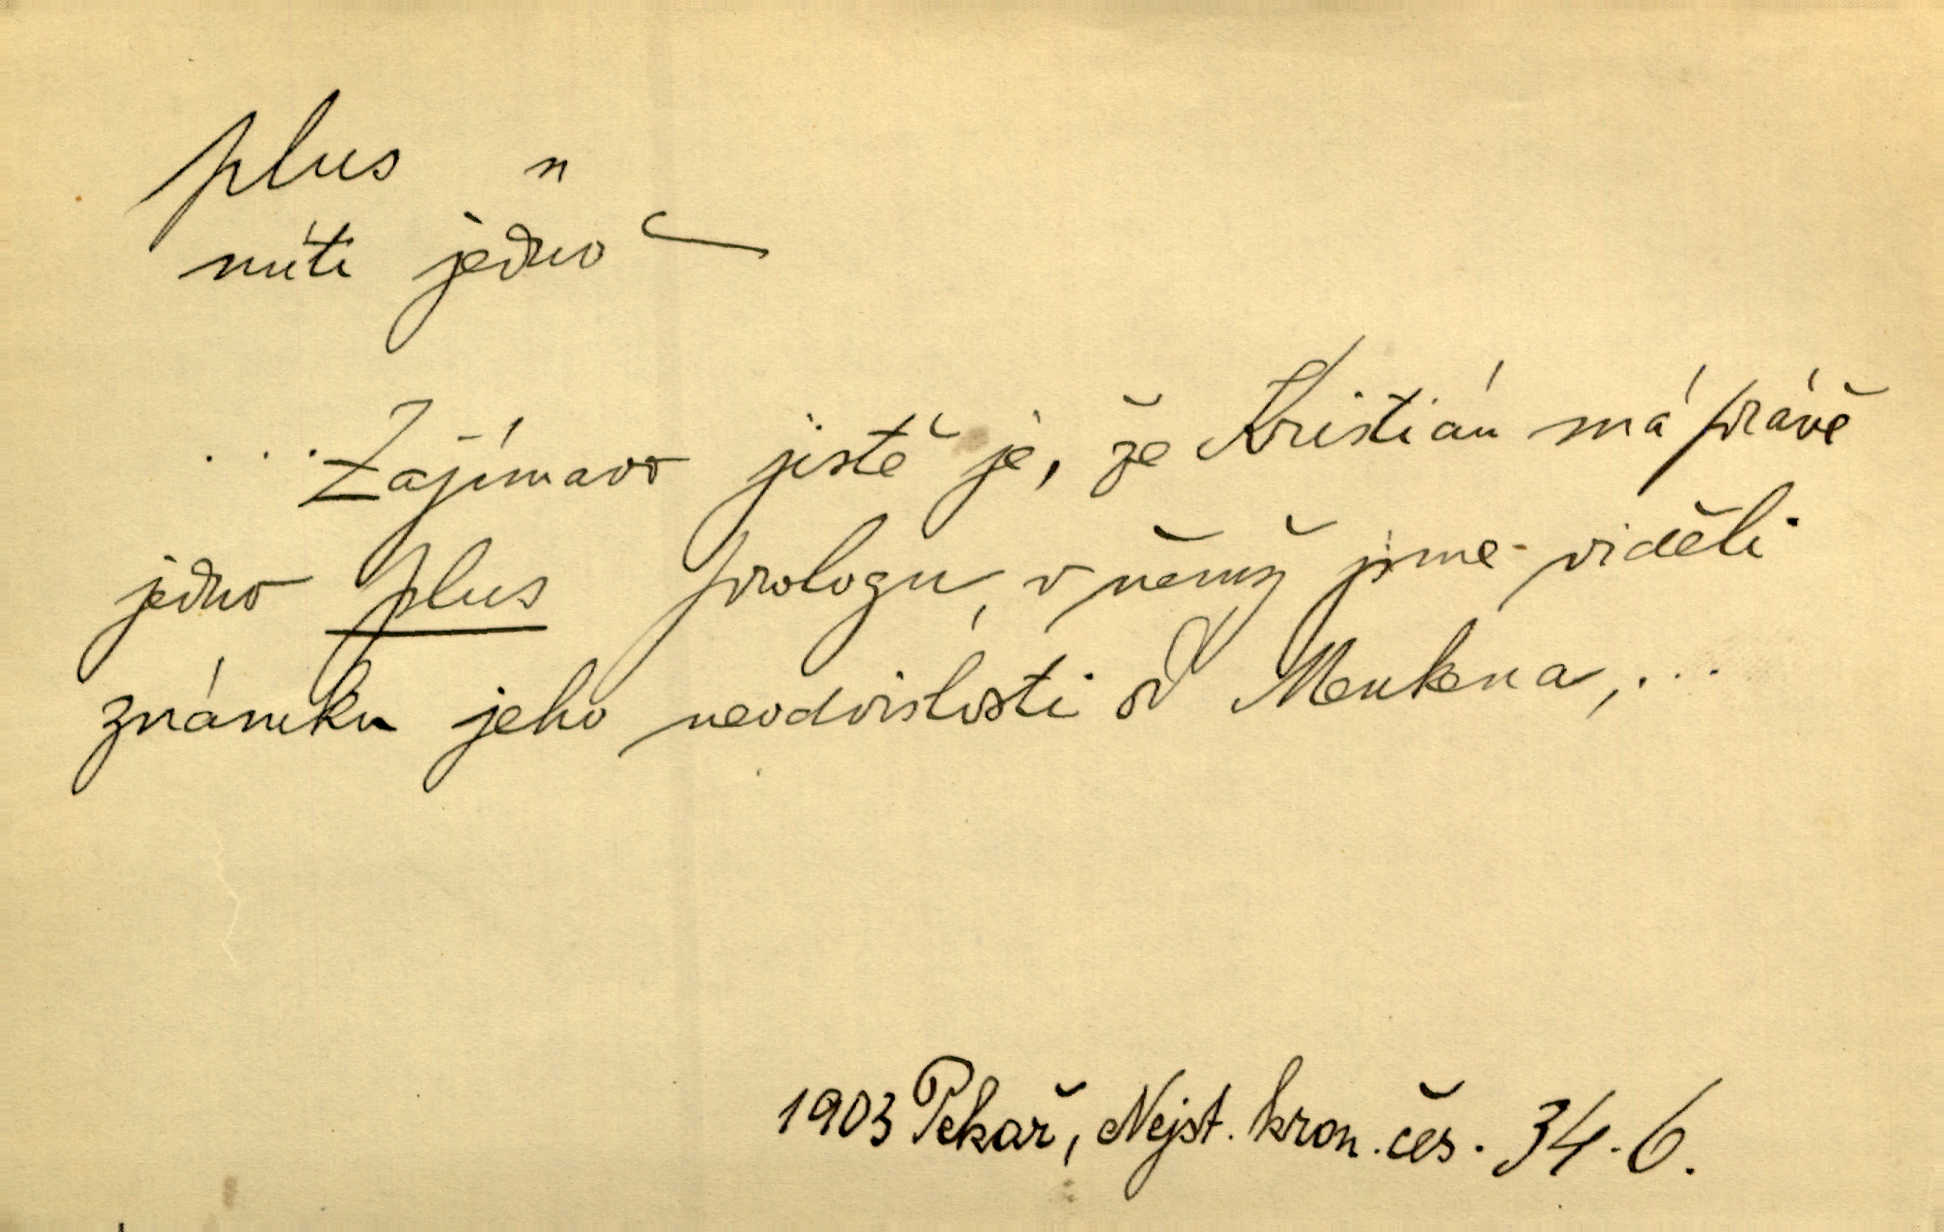 plus n
míti jedno ~
... Zajímavo jistě je, že Kristián má právě
jedno plus prologu, v němž jsme viděli
známku jeho neodvislosti od Menkena,...
1903 Pekař, Nejst. kron. čes. 34. 6.